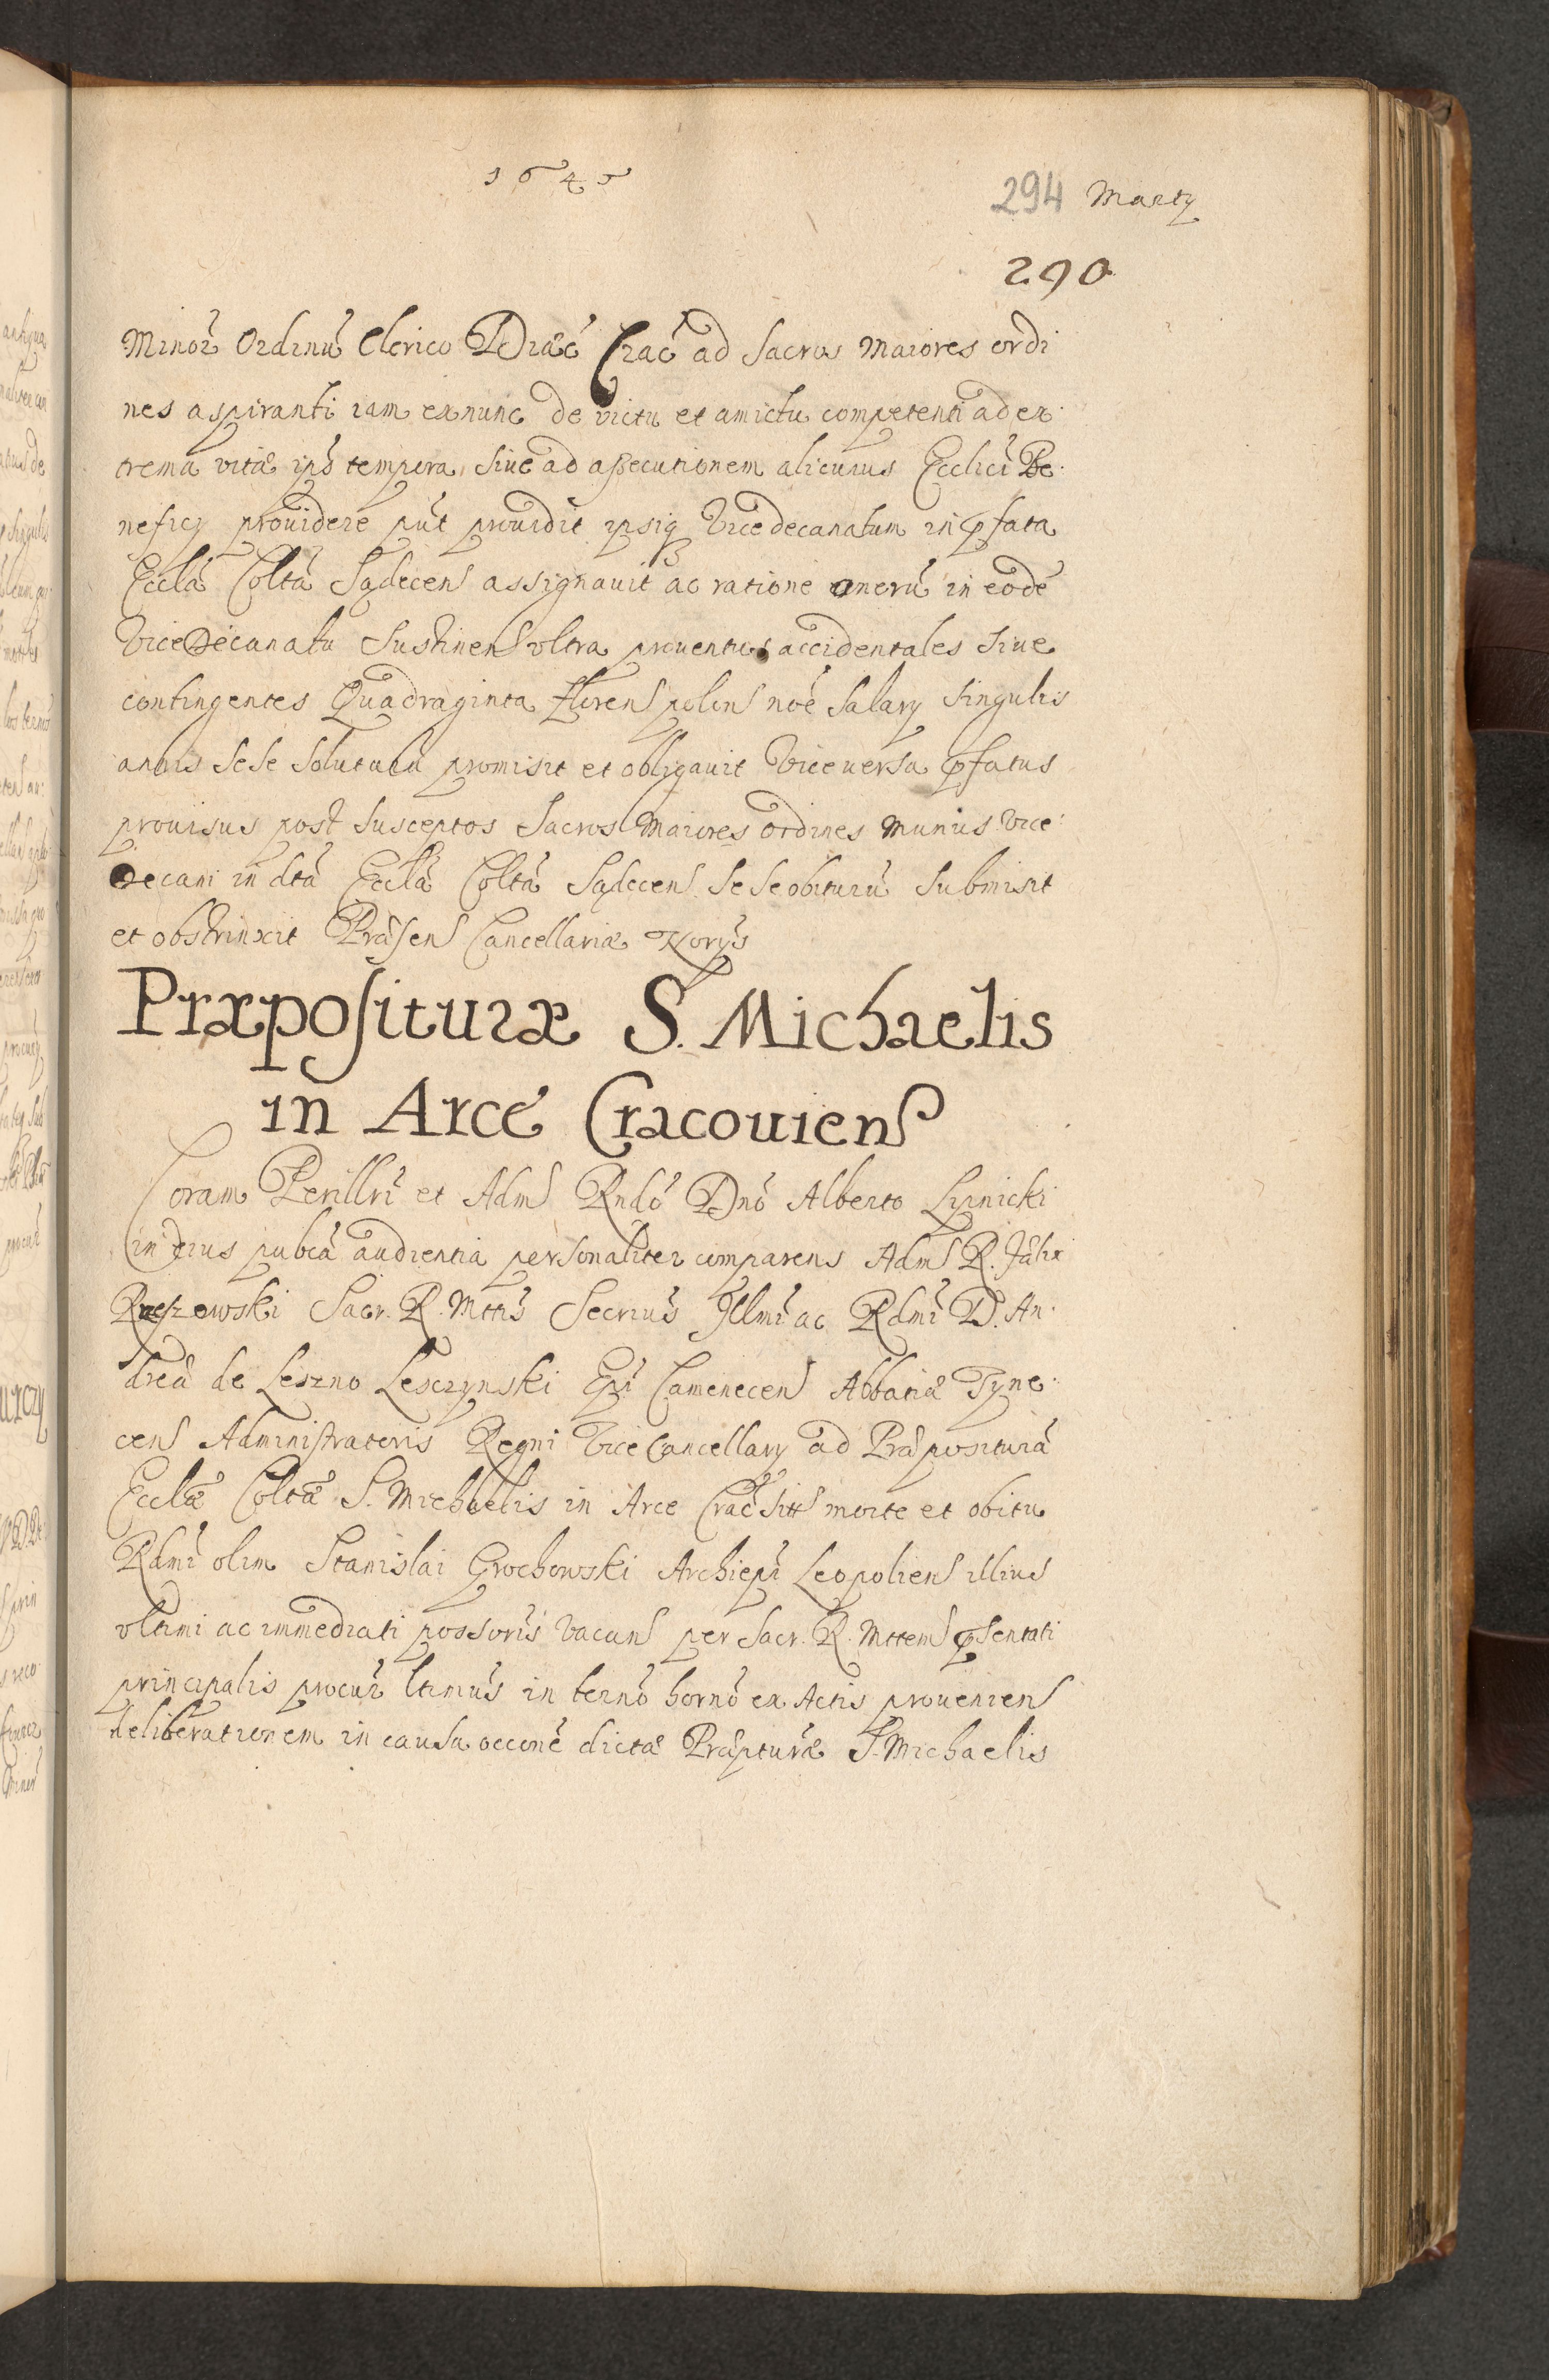 1645
294 Martÿ
290
Minor̃ Ordinũ Clerico Diaec̃ Crac̃ ad Sacros Maiores ordi
nes aspiranti iam exnunc de victu et amictu competenti ad ex
trema vitæ ips̃ tempora, siue ad assecutionem alicuius Ecclici̇̃ Be
neficÿ prouidere put̃ prouidit ipsiq Vicedecanatum in pfata
Eccla̋ Colta̋ Sądecens assignauit ac ratione onerũ in eodẽ
Vice Decanatu Sustinens vltra prouentus accidentales siue
contingentes Quadraginta florens polon noẽ Salarÿ singulis
annis sese soluturũ promisit et obligauit Viceuersa pfatus
prouisus post susceptos Sacros Maiores ordines Munus Vice
Decani in dtã Ecclã Coltã Sądecens se se obiturũ submisit
et obstrinxit Præsens Cancellariæ Norÿs̃
Præposituræ S. Michaelis
in Arce Cracouiens
Coram Perillrĩ et Adms Rndõ Dnõ Alberto Lipnicki
in eius pubcã audientia personaliter comparens Adms R. Fælix
Rzeszowski Sacr. R. Mttis̃ Secrius̃ Illmĩ ac Rdmĩ D. An
dreæ de Leszno Lesczynski Epĩ Camenecens Abbatiæ Tyne
cens Administratoris Regni Vice Cancellarÿ ad Præpositurã
Ecclæ̃ Coltæ̃ S. Michaelis in Arce Crac̃ sitt̃ morte et obitu
Rdmĩ olim Stanislai Grochowski Archiepĩ Leopoliens illius
vltimi ac immediati possoris̃ vacans per Sacr. R. Mttem̃ psentati
principalis procur̃ ltimus̃ in termõ hornõ ex Actis prouenien
deliberationem in causa occonẽ dictæ Præpturæ̃ S. Michaelis